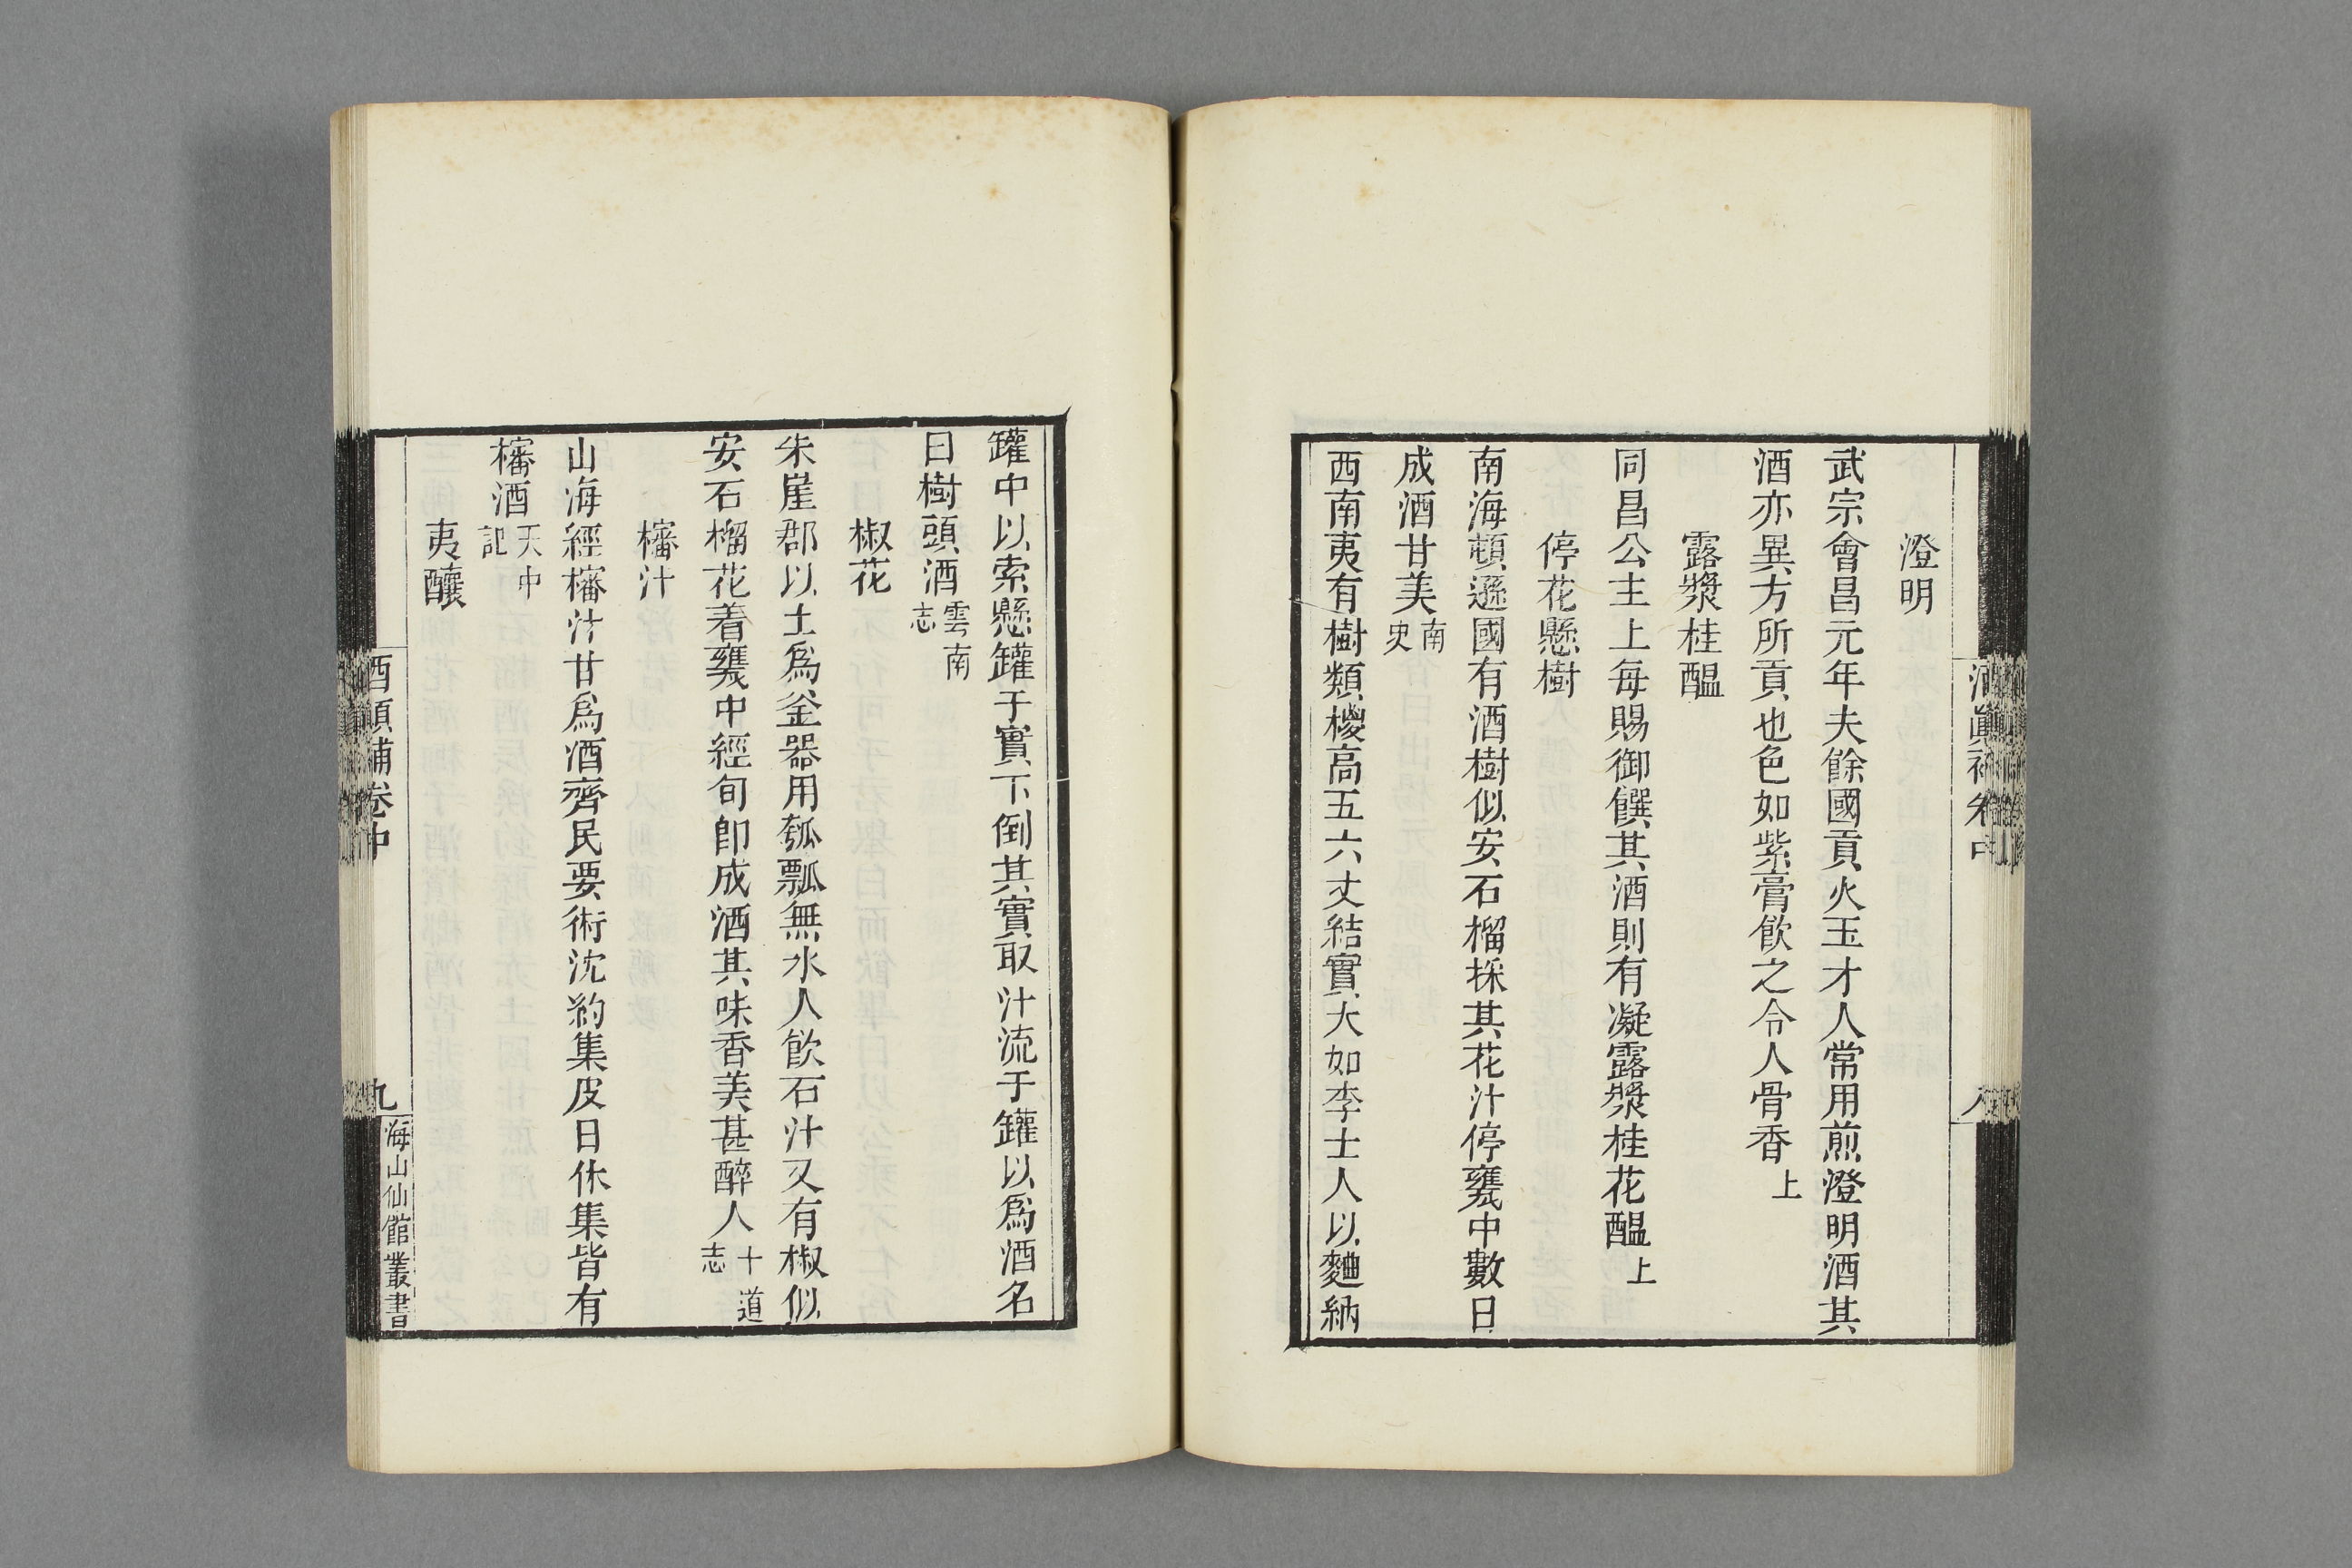 澄明
武宗會昌元年夫餘國貢火玉才人常用煎澄明酒其
酒亦異方所貢也色如紫膏飲之令人骨香上
露漿桂醞
同昌公主上每賜御饌其酒則有凝露漿桂花醞上
停花懸樹
南海頓遜國有酒樹似安石榴採其花汁停甕中數日
成酒甘美南史
西南夷有樹類㯶高五六丈結實大如李士人以麯納
罐中以索懸罐于實下倒其實取汁流于罐以爲酒名
曰樹頭酒雲南志
椒花
朱崖郡以土爲釜器用瓠瓢無水人飲石汁又有椒似
安石榴花着甕中經旬卽成酒其味香美甚醉人十道志
櫁汁
山海經櫁汁甘爲酒齊民要術沈約集皮日休集皆有
櫁酒天中記
夷釀
酒顛補卷中
九
海山仙館叢書